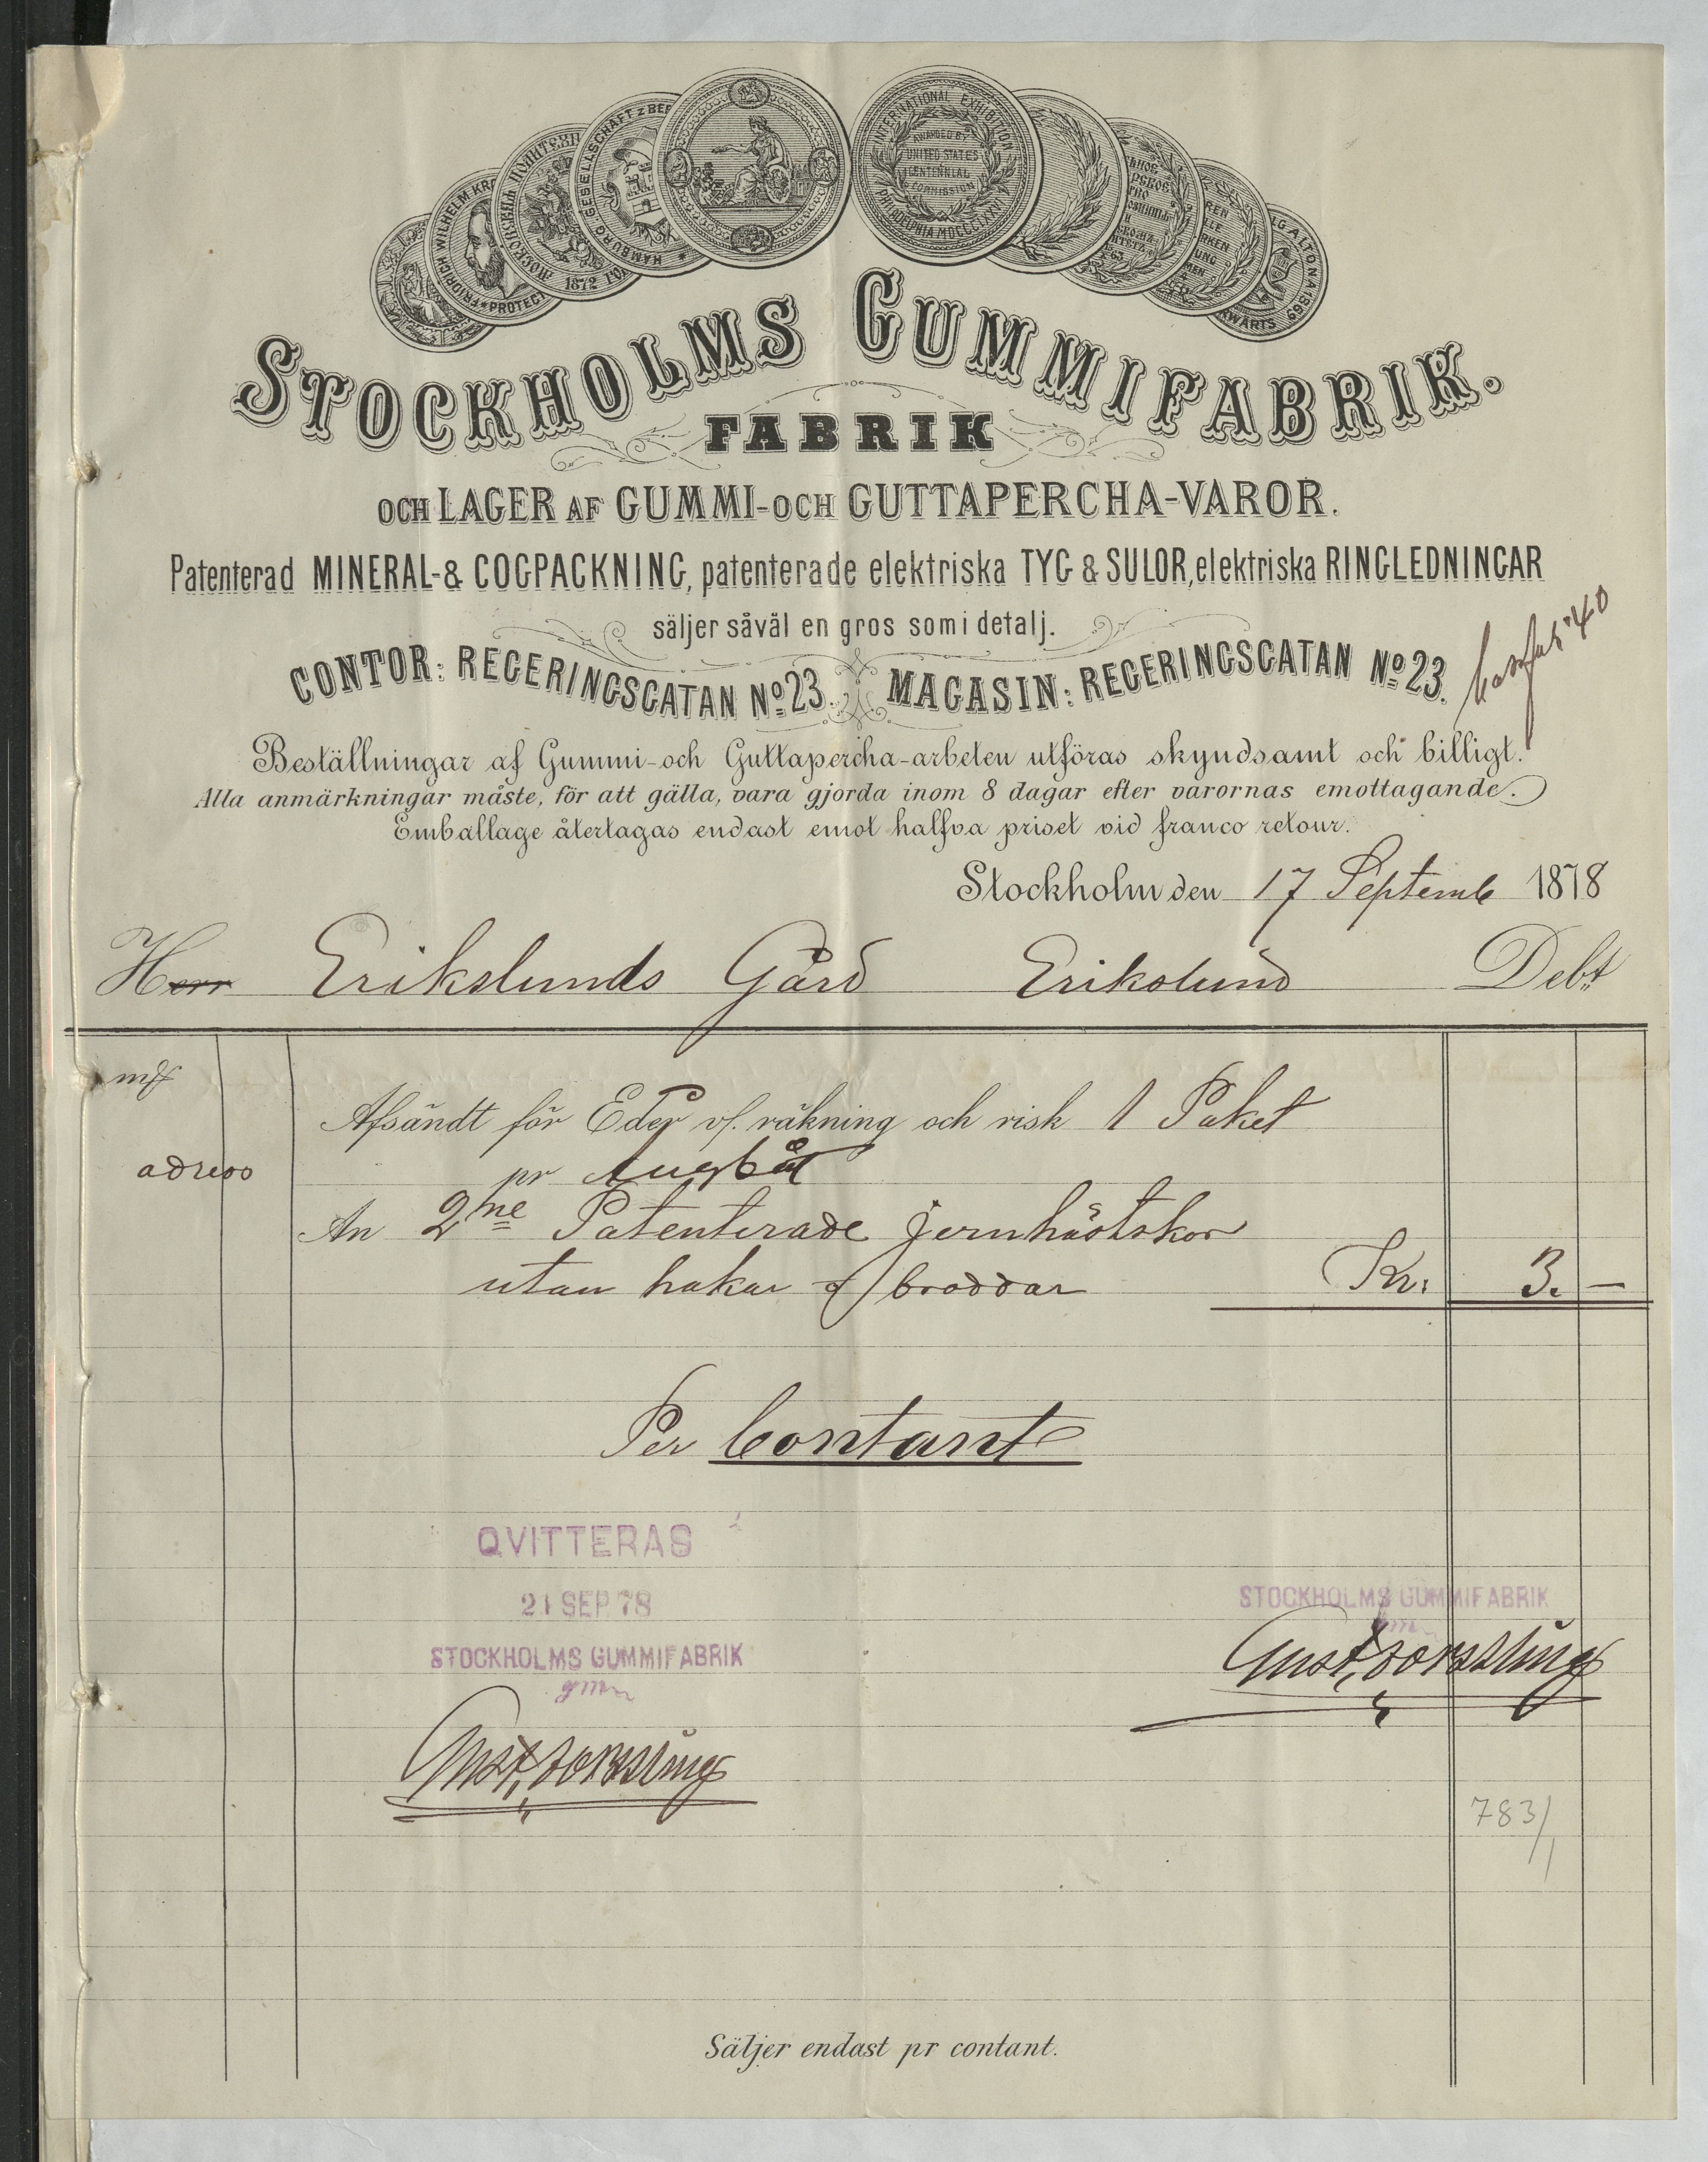 INTERNATIONAL EXHIBITION
AWARDED BY
UNITED STATES
CENTENNIAL
COMMISSION
PHILADELPHIA MDCCCLXXVI
HAMBURG GESELLSCHAFT Z BEF
FRIDRICH WILHELM KR
PROTECT
1872
ALTONA 1869
STOCKHOLMS GUMMIFABRIK.
FABRIK
OCH LAGER AF GUMMI- OCH GUTTAPERCHA-VAROR.
Patenterad MINERAL- & COGPACKNING, patenterade elektriska TYG & SULOR, elektriska RINGLEDNINGAR
säljer såväl en gros som i detalj.
CONTOR: REGERINGSGATAN No 23. MAGASIN: REGERINGSGATAN No 23.
Beställningar af Gummi- och Guttapercha-arbeten utföras skyndsamt och billigt.
Alla anmärkningar måste, för att gälla, vara gjorda inom 8 dagar efter varornas emottagande.
Emballage återtagas endast emot halfva priset vid franco retour.
Stockholm den 17 Septemb 1878
Herr Erikslunds Gård Erikslund Debt
Afsändt för Eder räkning och risk 1 Paket
adress
pr Ångbåt
An 2ne Patenterade jernhästskor
utan hakar & broddar Kr: 3. —
Per Contant
QVITTERAS
21 SEP 78
STOCKHOLMS GUMMIFABRIK
STOCKHOLMS GUMMIFABRIK
Gust. Forssling
Gust. Forssling
783/1
Säljer endast pr contant.